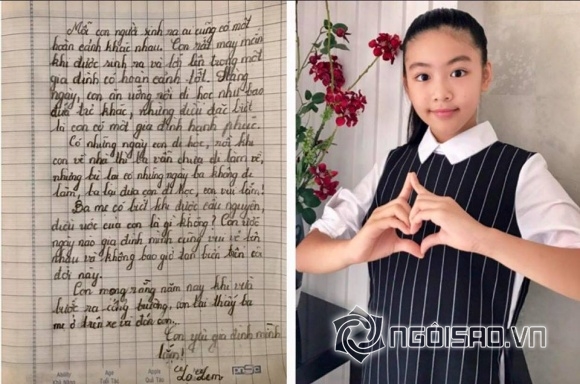 Mỗi con người sinh ra ai cũng có một
hoàn cảnh khác nhau. Con rất may mắn
khi được sinh ra và lớn lên trong một
gia đình có hoàn cảnh tốt. Hàng
ngày, con ăn uống rồi đi học như bao
đứa trẻ khác, nhưng điều đặc biệt
là con có một gia đình hạnh phúc.
Có những ngày con đi học, rồi khi
con về nhà thì ba vẫn chưa đi làm về,
nhưng bù lại có những ngày ba không đi
làm, ba lại đưa con đi học, con vui lắm!
Ba mẹ có biết khi được cầu nguyện,
điều ước của con là gì không? Con ước
ngày nào gia đình mình cũng vui vẻ bên
nhau và không bao giờ tan biến trên cõi
đời này.
Con mong rằng năm nay khi vừa
bước ra cổng trường, con lại thấy ba
mẹ ở trên xe và đón con...
Con yêu gia đình mình
lắm!
NGÔISAO.VN